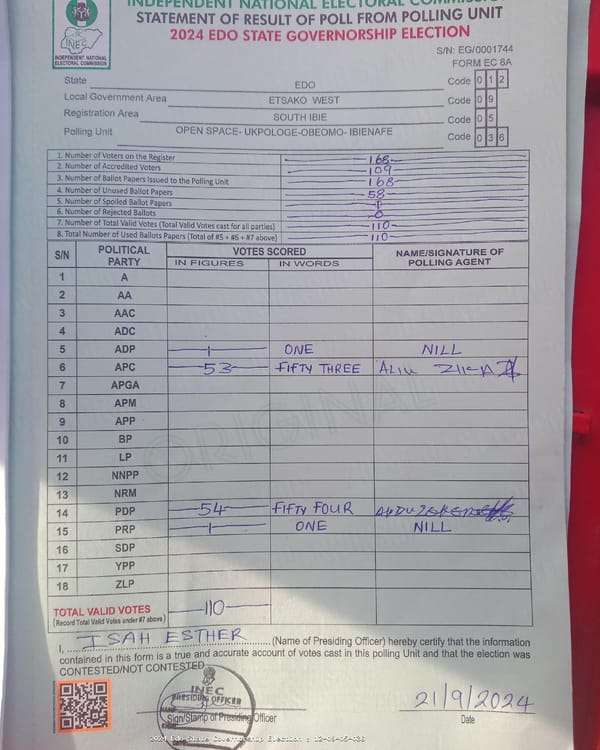 INDEPENDENT NATIONAL ELECTORAL COMMISSION
STATEMENT OF RESULT OF POLL FROM POLLING UNIT
2024 EDO STATE GOVERNORSHIP ELECTION
INEC
INDEPENDENT NATIONAL
ELECTORAL COMMISSION
S/N: EG/0001744
FORM EC 8A
State EDO Code 0 1 2
Local Government Area ETSAKO WEST Code 0 9
Registration Area SOUTH IBIE Code 0 5
Polling Unit OPEN SPACE- UKPOLOGE-OBEOMO- IBIENAFE Code 0 3 6
1. Number of Voters on the Register 168
2. Number of Accredited Voters 109
3. Number of Ballot Papers Issued to the Polling Unit 168
4. Number of Unused Ballot Papers 58
5. Number of Spoiled Ballot Papers
6. Number of Rejected Ballots 0
7. Number of Total Valid Votes (Total Valid Votes cast for all parties) 110
8. Total Number of Used Ballots Papers (Total of #5 + #6 + #7 above) 110
S/N POLITICAL PARTY VOTES SCORED NAME/SIGNATURE OF POLLING AGENT
IN FIGURES IN WORDS
1 A
2 AA
3 AAC
4 ADC
5 ADP 1 ONE NILL
6 APC 53 FIFTY THREE ALIU
7 APGA
8 APM
9 APP
10 BP
11 LP
12 NNPP
13 NRM
14 PDP 54 FIFTY FOUR
15 PRP 1 ONE NILL
16 SDP
17 YPP
18 ZLP
ORIGINAL
TOTAL VALID VOTES 110
(Record Total Valid Votes under #7 above)
I, ISAH ESTHER (Name of Presiding Officer) hereby certify that the information
contained in this form is a true and accurate account of votes cast in this polling Unit and that the election was
CONTESTED/NOT CONTESTED
INEC
PRESIDING OFFICER
Sign/Stamp of Presiding Officer
21/9/2024
Date
2024 Edo State Governorship Election : 12-09-05-036